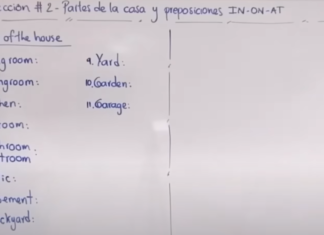 cción #2- Partes de la casa y preposiciones IN-ON-AT
of the house
g room:
ngroom:
hen:
room:
hroom
troom :
ic:
ement:
ckyard:
9. Yard:
10. Garden:
11. Garage: